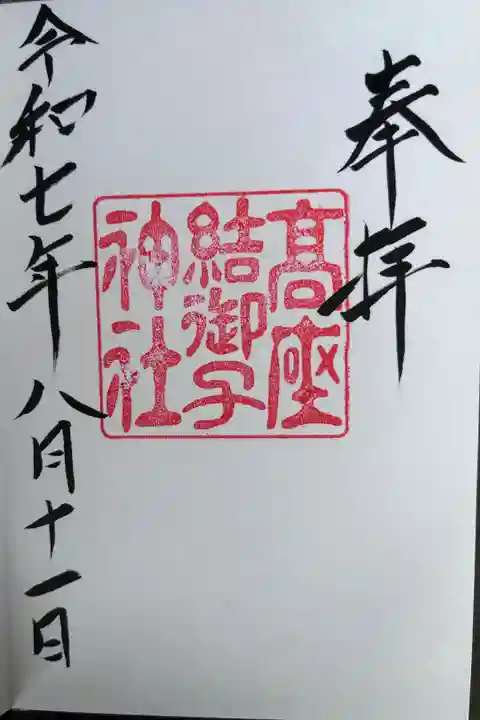 奉拝
髙座
結御子
神社
令和七年八月十一日